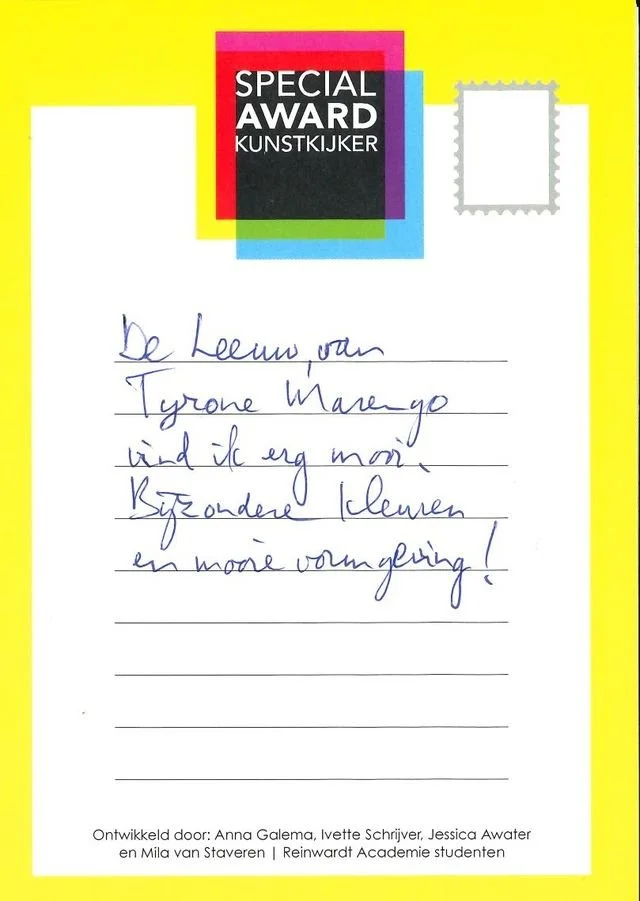 SPECIAL
AWARD
KUNSTKIJKER
De Leeuw, van
Tyrone Marengo
vind ik erg mooi.
Bijzondere kleuren
en mooie vormgeving!
Ontwikkeld door: Anna Galema, Ivette Schrijver, Jessica Awater
en Mila van Staveren | Reinwardt Academie studenten